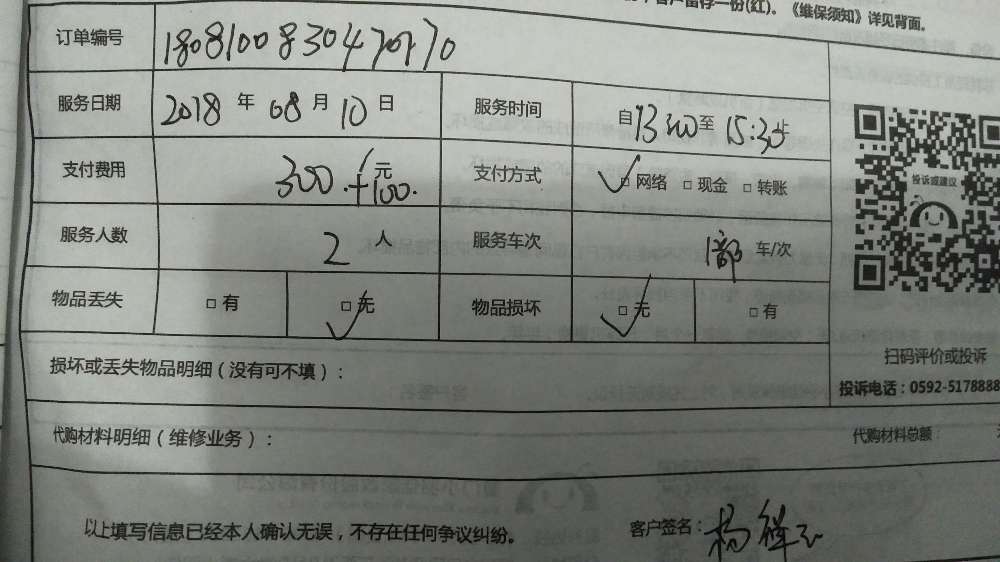 客户留存一份(红)。《维保须知》详见背面。
订单编号
服务日期 2018 年 08 月 10 日 服务时间 自13:00至15:30止
支付费用 300.+100. 元 支付方式 □网络 □现金 □转账
投诉或建议
服务人数 2 人 服务车次 1部 车/次
物品丢失 □有 □无 物品损坏 □无 □有
扫码评价或投诉
损坏或丢失物品明细（没有可不填）：
投诉电话：0592-5178888
代购材料明细（维修业务）：
代购材料总额：
以上填写信息已经本人确认无误，不存在任何争议纠纷。 客户签名：杨祥